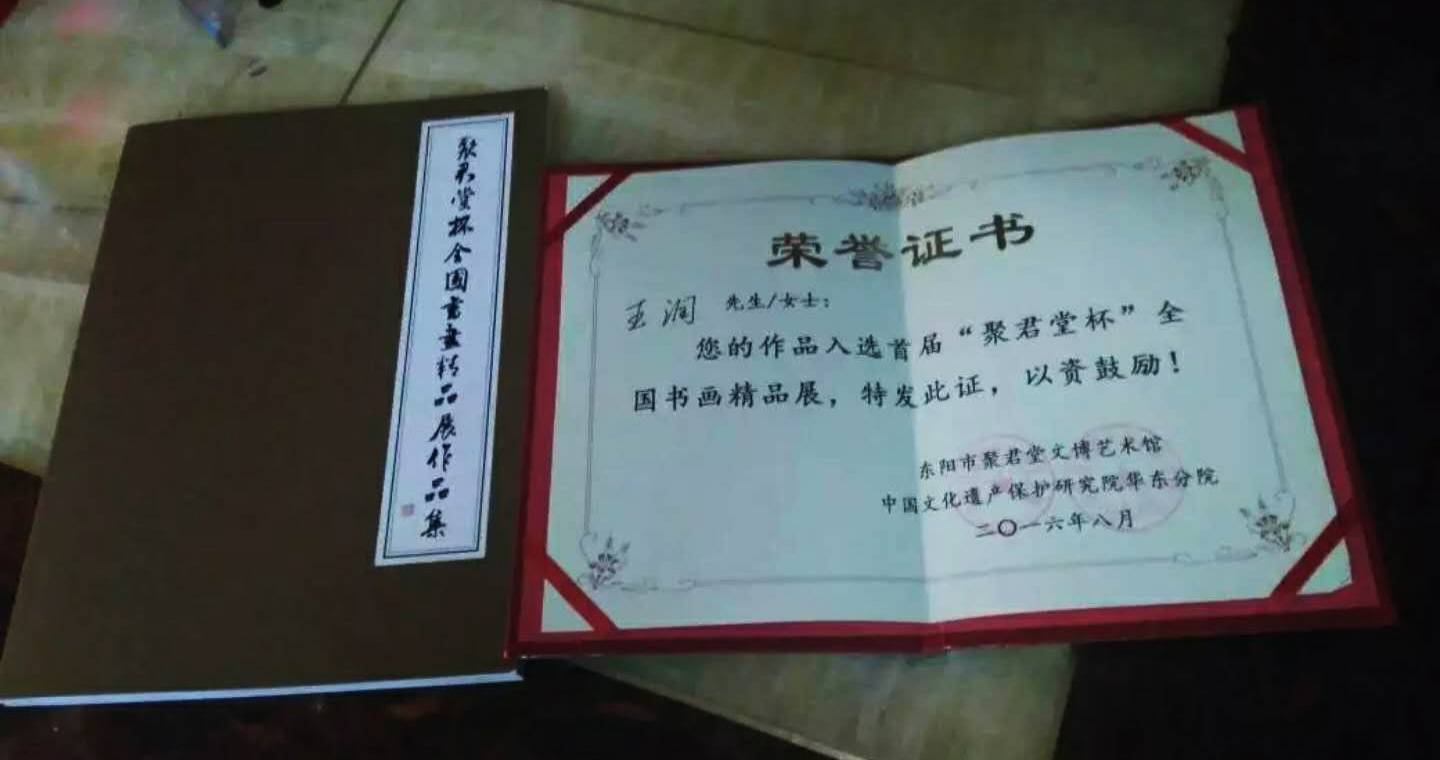 聚君堂杯全國書畫精品展作品集
荣誉证书
王润 先生/女士：
您的作品入选首届“聚君堂杯”全
国书画精品展，特发此证，以资鼓励！
东阳市聚君堂文博艺术馆
中国文化遗产保护研究院华东分院
二〇一六年八月